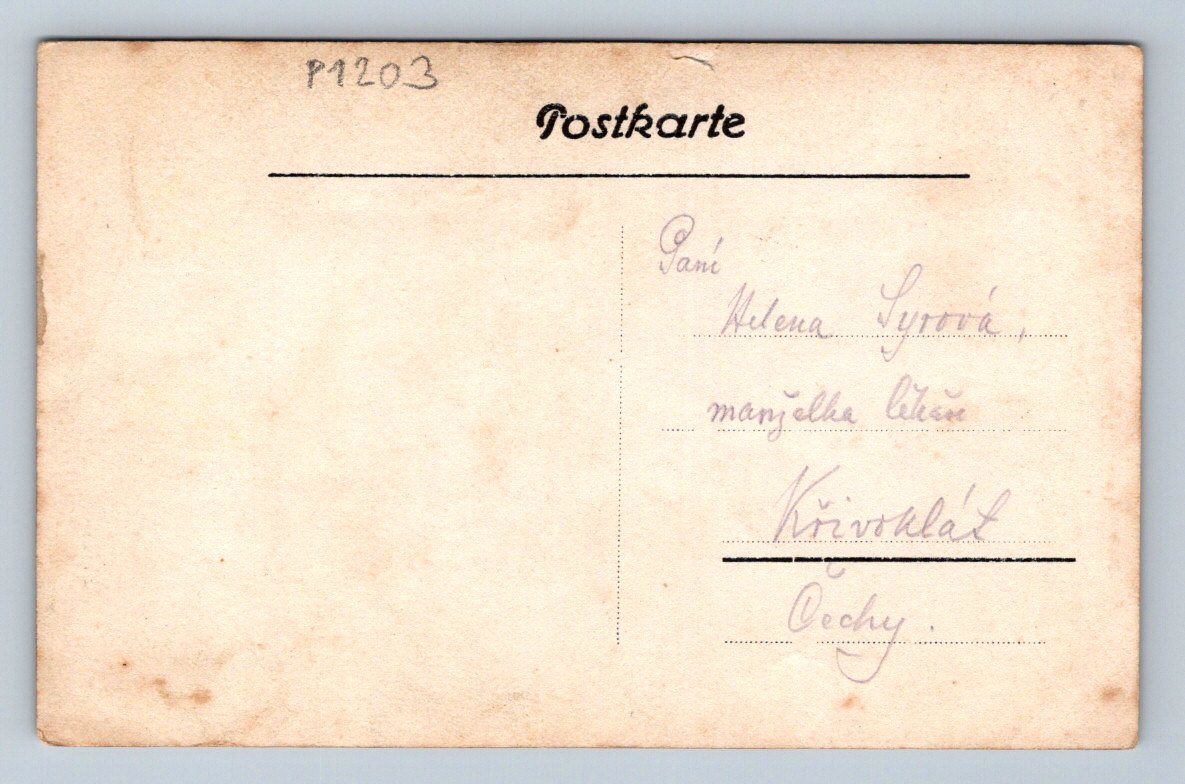 P1203
Postkarte
Paní
Helena Syrová,
manželka
Křivoklát
Čechy.